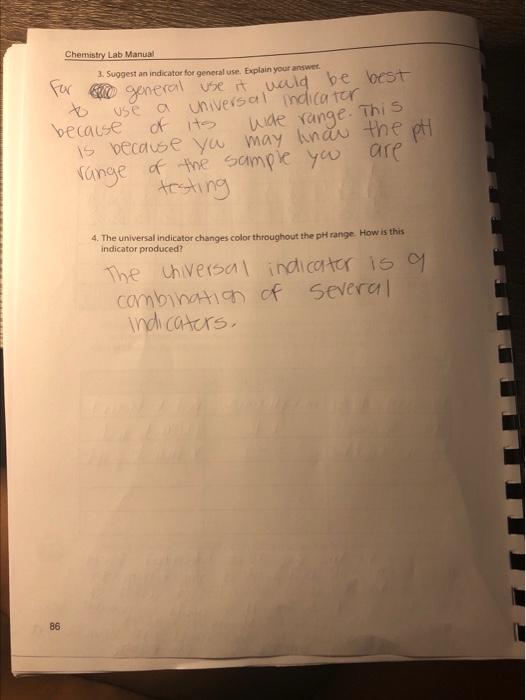 Chemistry Lab Manual
3. Suggest an indicator for general use. Explain your answer.
For general use it would be best
to use a universal indicator
because of its wide range. This
is because you may know the pH
range of the sample you are
testing
4. The universal indicator changes color throughout the pH range. How is this
indicator produced?
The universal indicator is a
combination of several
indicators.
86